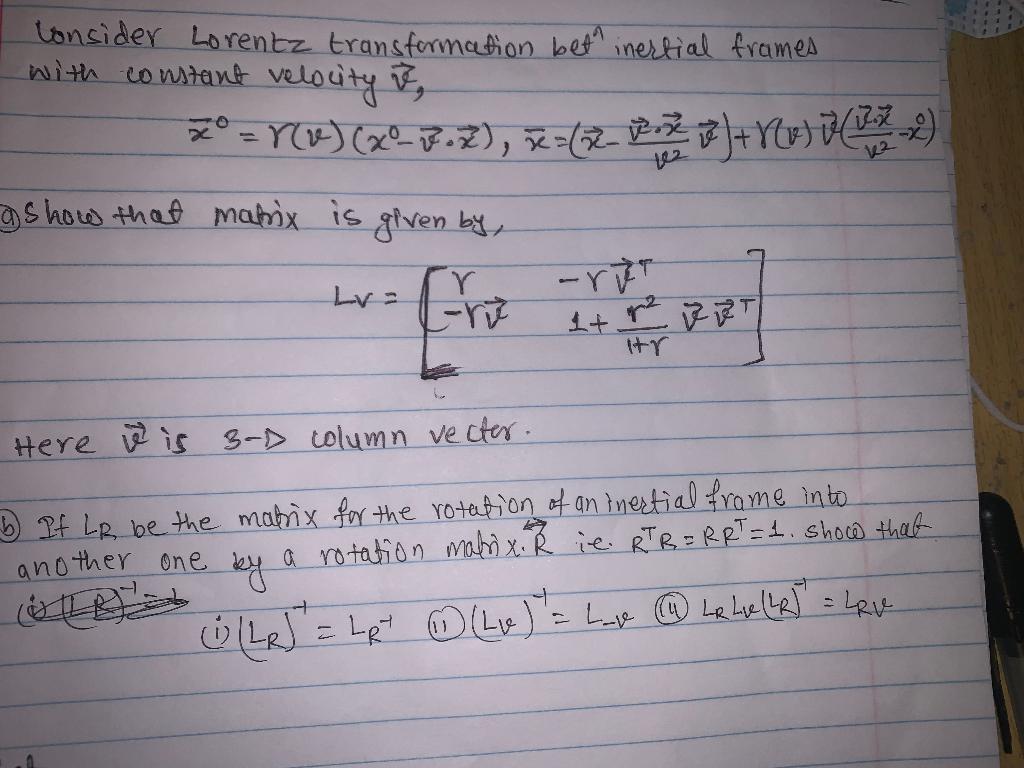 Consider Lorentz transformation betⁿ inertial frames
with constant velocity v⃗,
x̄⁰ = γ(v)(x⁰ - v⃗.x⃗), x̄ = (x⃗ - v⃗.x⃗/v² v⃗) + γ(v) v⃗(v⃗.x⃗/v² - x⁰)
ⓐ Show that matrix is given by,
Lv = [ γ -γv⃗ᵀ
-γv⃗ 1 + γ²/1+γ v⃗ v⃗ᵀ ]
Here v⃗ is 3-D column vector.
ⓑ If LR be the matrix for the rotation of an inertial frame into
another one by a rotation matrix. R⃗ i.e. RᵀR = RRᵀ = 1. show that
(i) (LR)⁻¹ = LR⁻¹ (ii) (Lv)⁻¹ = L-v (4) LR Lv(LR)⁻¹ = LRv